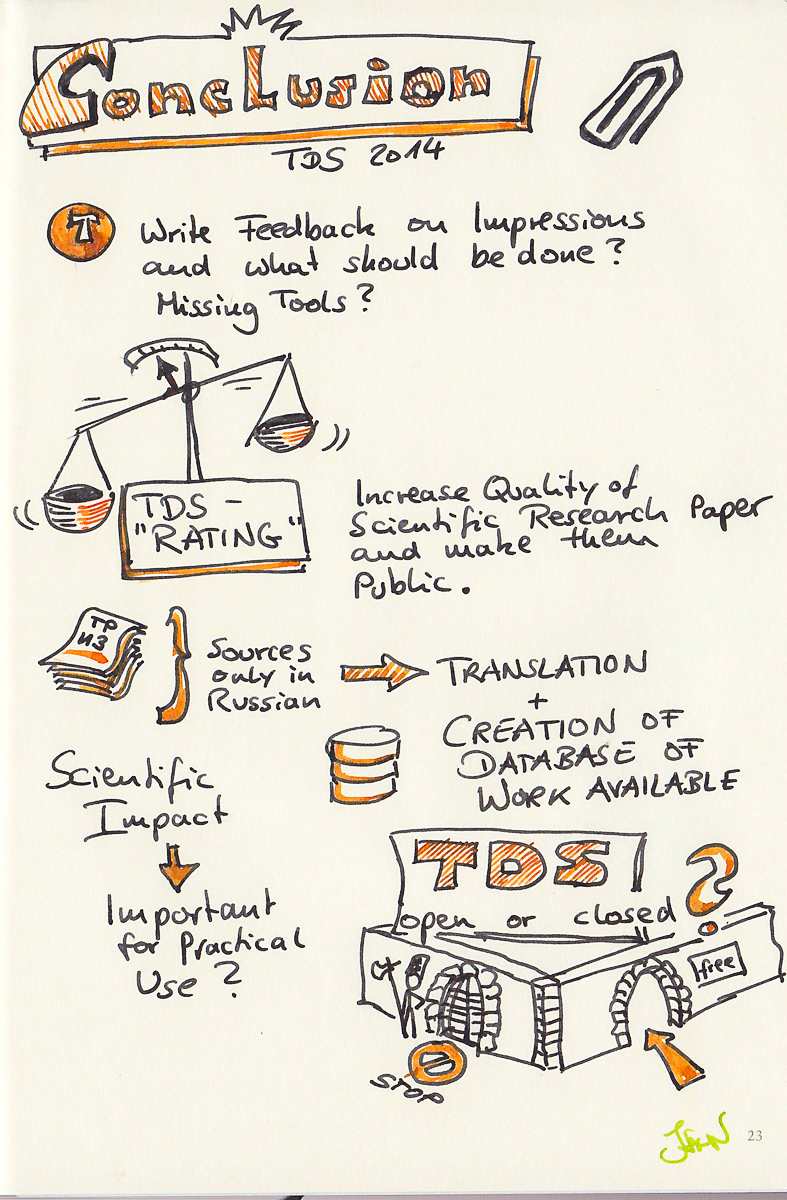 Conclusion
TDS 2014
T
Write Feedback on Impressions
and what should be done?
Missing Tools?
TDS -
"RATING"
Increase Quality of
Scientific Research Paper
and make them
Public.
ТР
ИЗ
Sources
only in
Russian
TRANSLATION
+
CREATION OF
DATABASE OF
WORK AVAILABLE
Scientific
Impact
Important
for Practical
Use?
TDS
open or closed ?
free
STOP
23